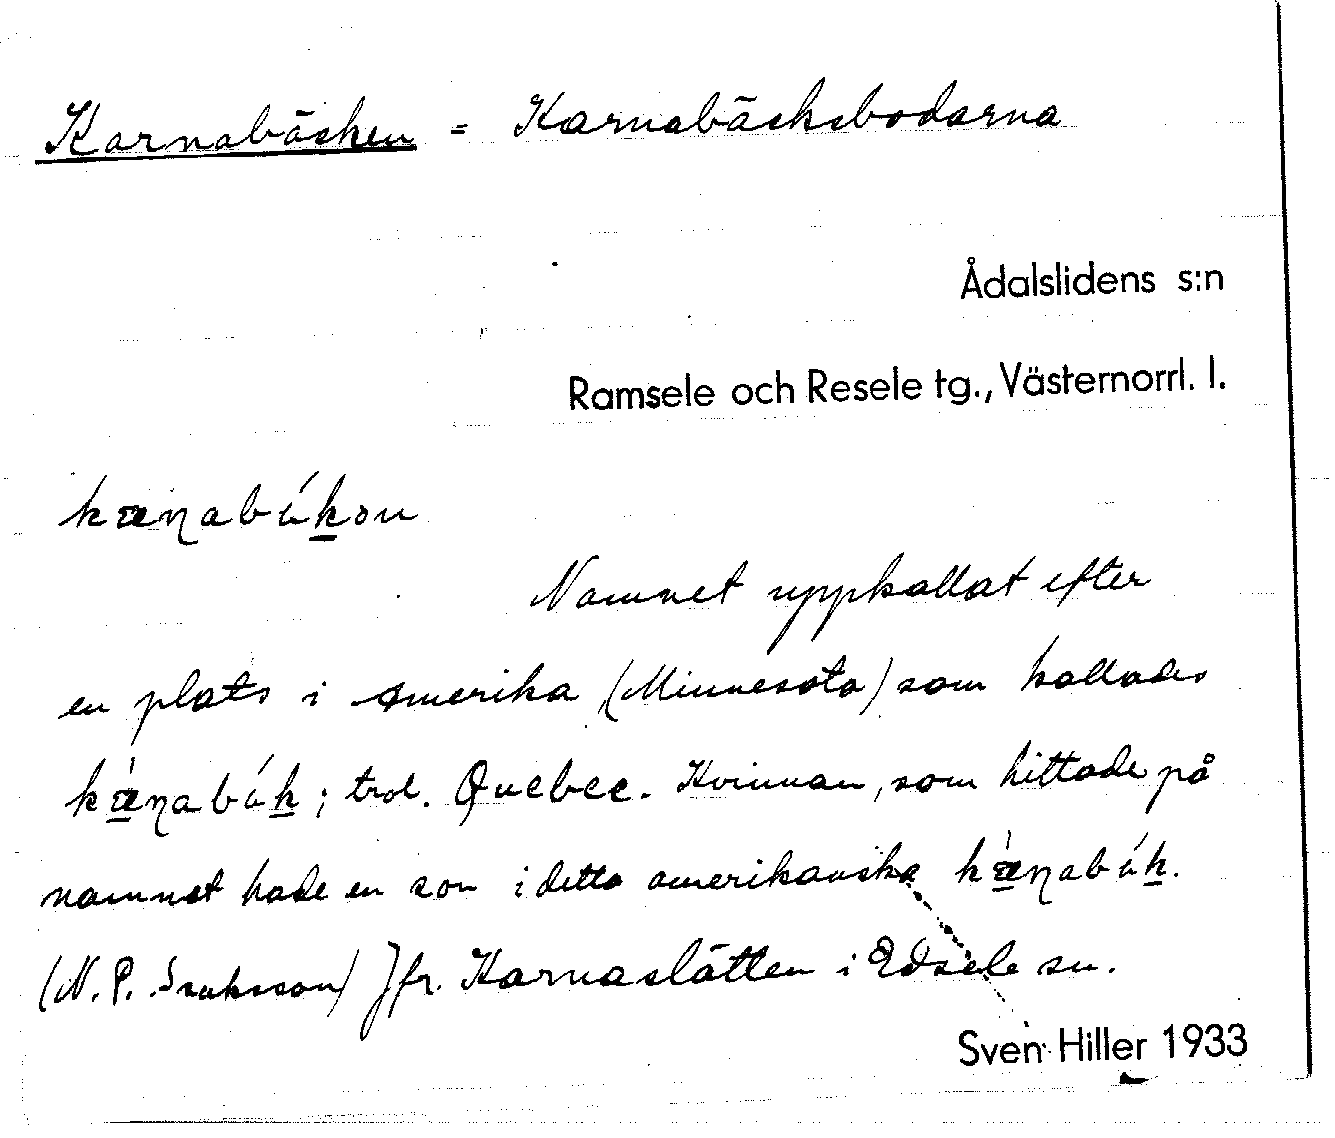 Karnabäcken = Karnabäcksbodarna
Ådalslidens s:n
Ramsele och Resele tg., Västernorrl. l.
Namnet uppkallat efter
en plats i Amerika (Minnesota) som kallades
; trol. Quebec. Kvinnan, som hittade på
namnet hade en son i detta amerikanska
(N. P. Isaksson) Jfr. Karnaslåtten i Edsele sn.
Sven Hiller 1933